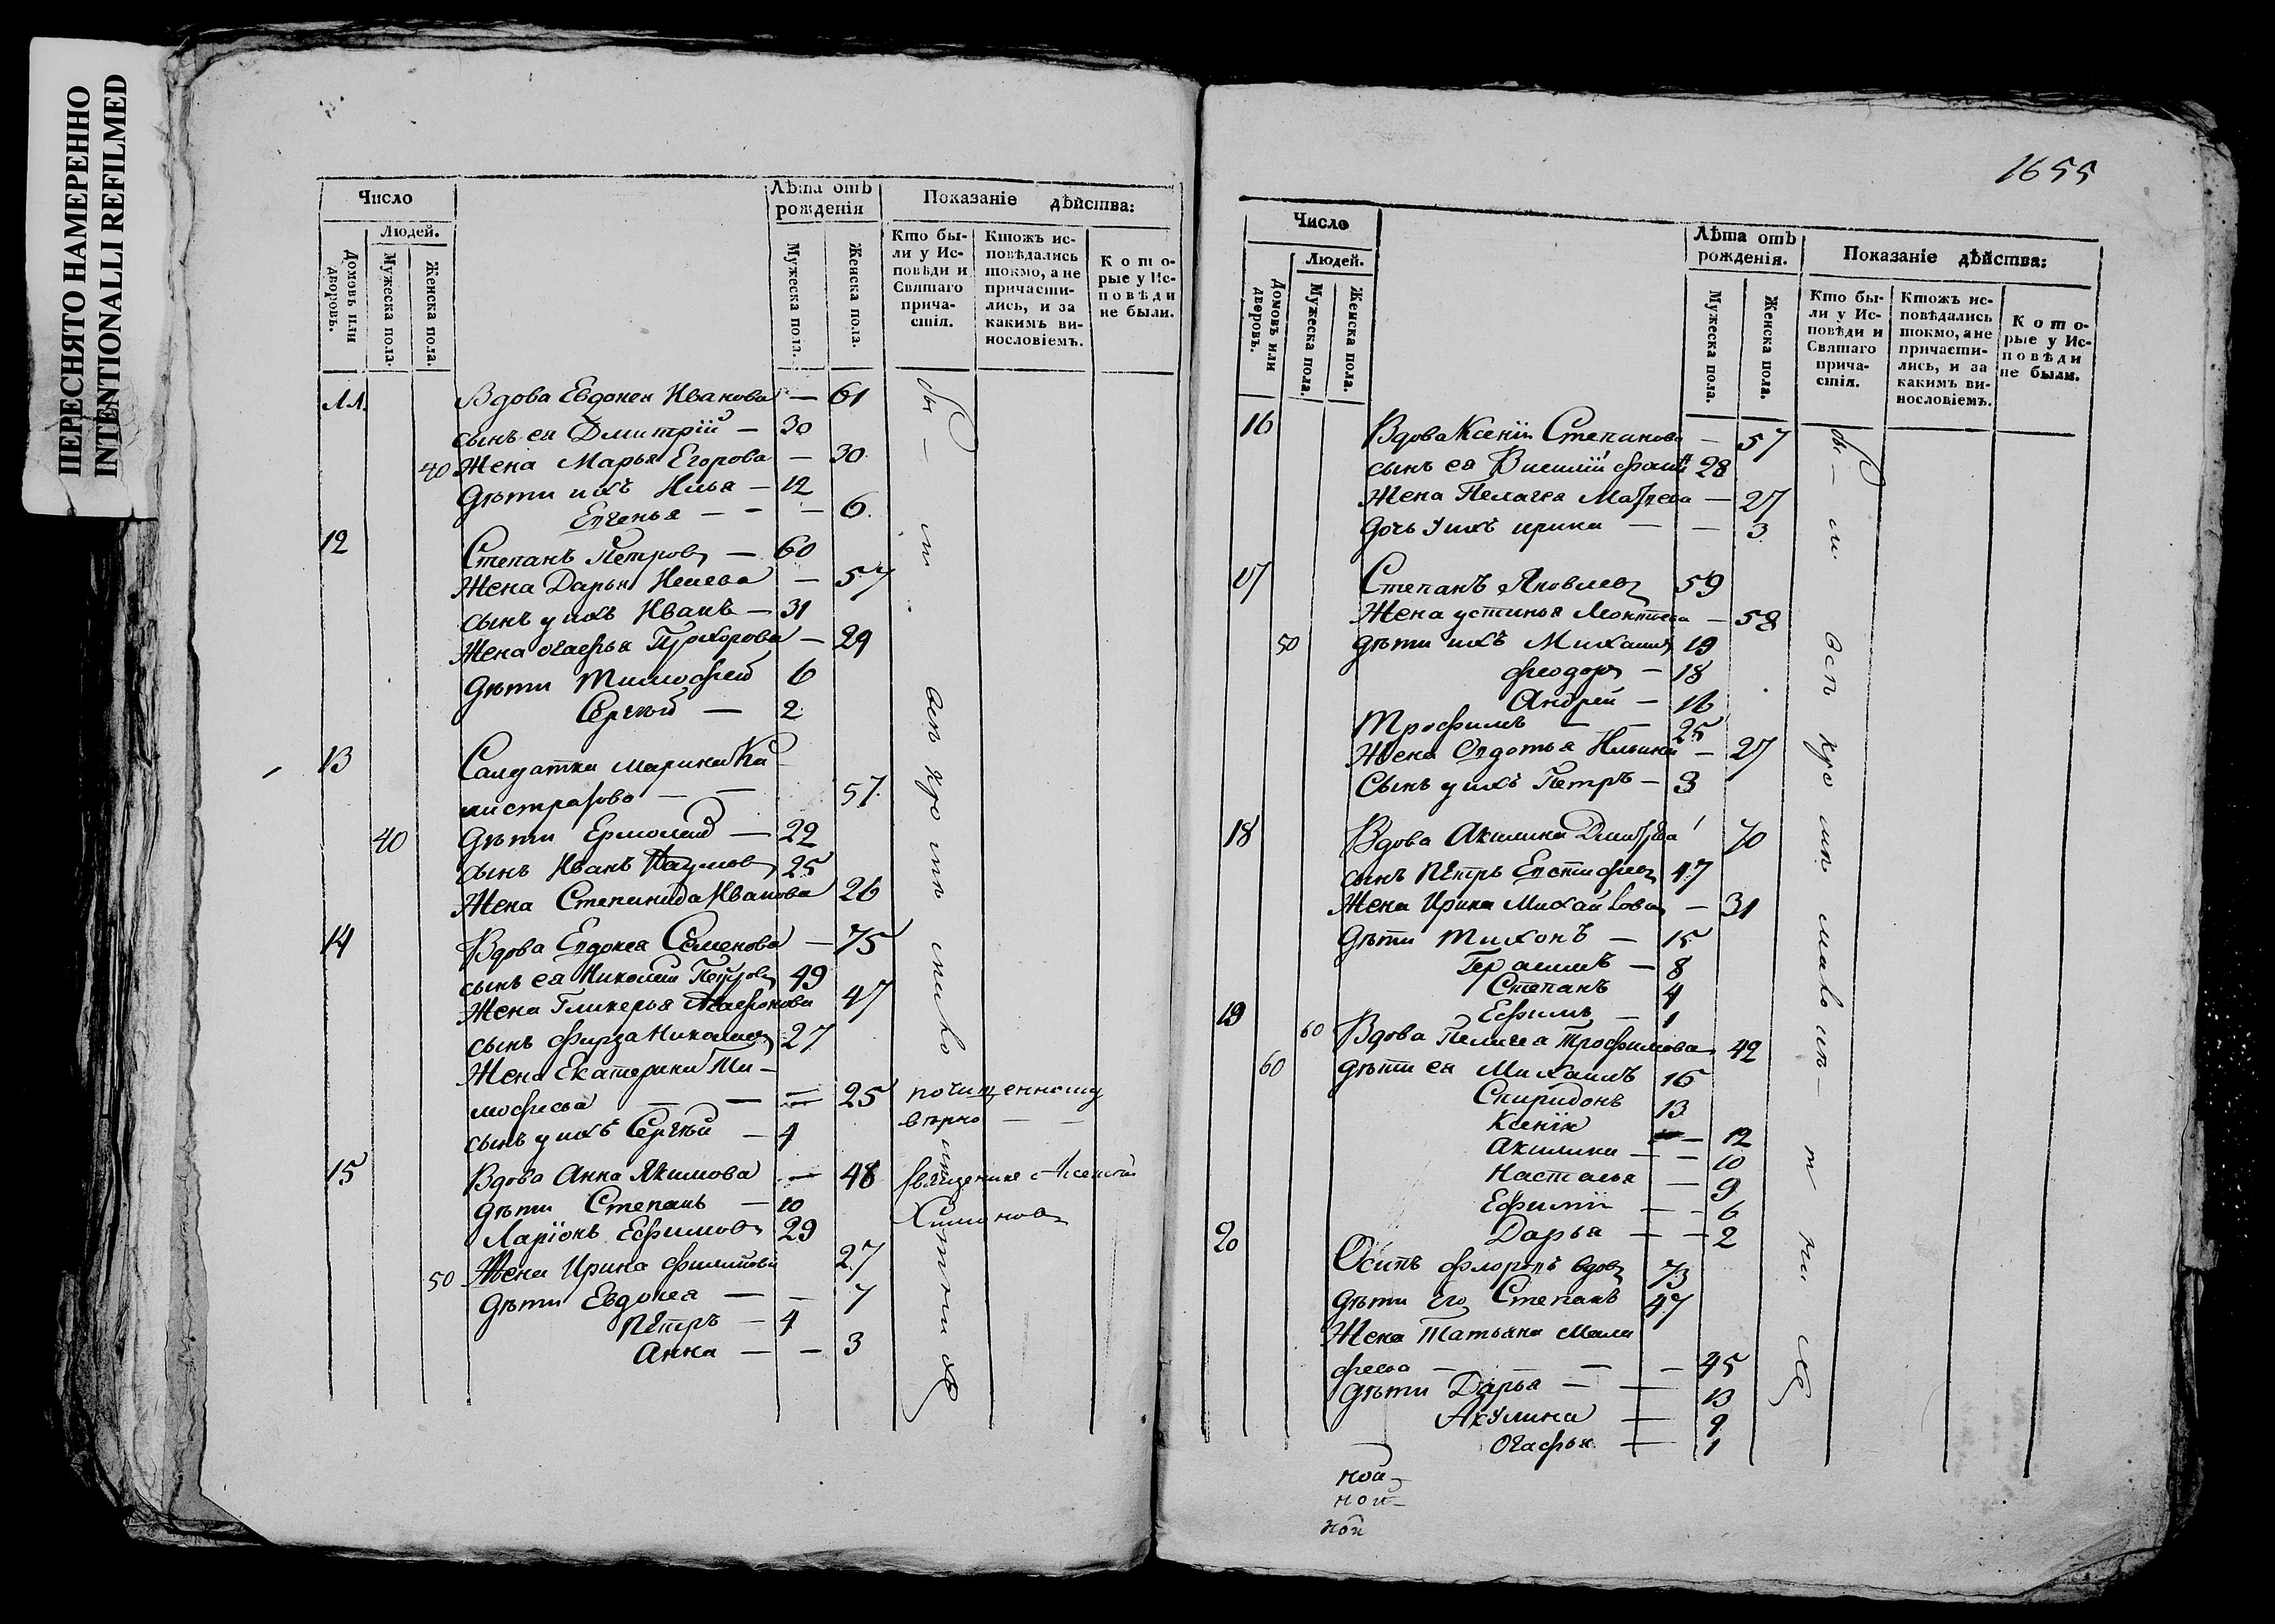 ПЕРЕСНЯТО НАМЕРЕННО
INTENTIONALLI REFILMED
Число
Людей.
Домовъ или дворовъ.
Мужеска пола.
Женска пола.
Лѣта отъ рожденія
Мужеска пола.
Женска пола.
Показаніе дѣйства:
Кто бы-
ли у Ис-
повѣди и
Святаго
прича-
стія.
Ктожъ ис-
повѣдались
токмо, а не
причасти-
лись, и за
какимъ ви-
нословіемъ.
Кото-
рые у Ис-
повѣди
не были.
11. Вдова Евдокея Иванова — 61
сынъ ея Дмитрій — 30
40 Жена Марья Егорова — 30
дѣти ихъ Илья — 12
Епгенья — — — 6.
12 Степанъ Петровъ — 60
Жена Дарья — 57
сынъ у ихъ Иванъ — 31
Жена огафья Прохорова — 29
дѣти Тимофей 6
Сергѣй — 2
13 Салдатка марина Ка
листратова — — 57.
40 дѣти Ермолай — 22
сынъ Иванъ Наумовъ 25
Жена Степанида Иванова 26
14 Вдова Епдокея Семенова — 75
сынъ ея Николай Петровъ 49
Жена Гликерья Агафонова 47
сынъ фирза Николаевъ 27
Жена Екатерина Ти-
мофеева — — — 25
сынъ у ихъ Сергѣй — 4
15 Вдова Анна Якимова — 48
дѣти Степанъ — 10
Ларіонъ Ефимовъ 29
50 Жена Ирина филипова 27
дѣти Евдокея — — 7
Пётръ — 4
Анна — — 3
почищенному
вѣрно — —
священникъ Алексѣй
1655
Число
Людей.
Домовъ или дворовъ.
Мужеска пола.
Женска пола.
Лѣта отъ рожденія.
Мужеска пола.
Женска пола.
Показаніе дѣйства:
Кто бы-
ли у Ис-
повѣди и
Святаго
прича-
стія.
Ктожъ ис-
повѣдались
токмо, а не
причасти-
лись, и за
какимъ ви-
нословіемъ.
Кото-
рые у Ис-
повѣди
не были.
16 Вдова Ксенія Степанова — 57
сынъ ея Василій 28
Жена Пелагея Матвѣева — 27
дочь у ихъ ирина — — 3
17 Степанъ Яковлевъ 59
Жена устинья Леонтева — 58
50 дѣти ихъ Михаилъ 19
феодоръ — 18
Андрей — 16
Трофимъ — — 25
Жена Опдотья Ильина — 27
Сынъ у ихъ Петръ — 3
18 Вдова Акилина Дмитрева 70
сынъ Пётръ Епстафьевъ 47
Жена Ирина Михайлова — 31
дѣти Тихонъ — 15
Герасимъ — 8
Степанъ 4
Ефимъ — 1
19 60 Вдова Пелагея Трофимова 42
60 дѣти ея Михаилъ 16
Спиридонъ 13
Ксенія — 12
Акилина — — 10
Настасья — 9
Ефимія — — 6
Дарья — — 2
20 Осипъ флоровъ вдовъ 73
дѣти Его Степанъ 47
Жена Татьяна Мала
феева — — — — 45
дѣти Дарья — — 13
Акулина — 9
Огафья — 1
ной
ной
ной